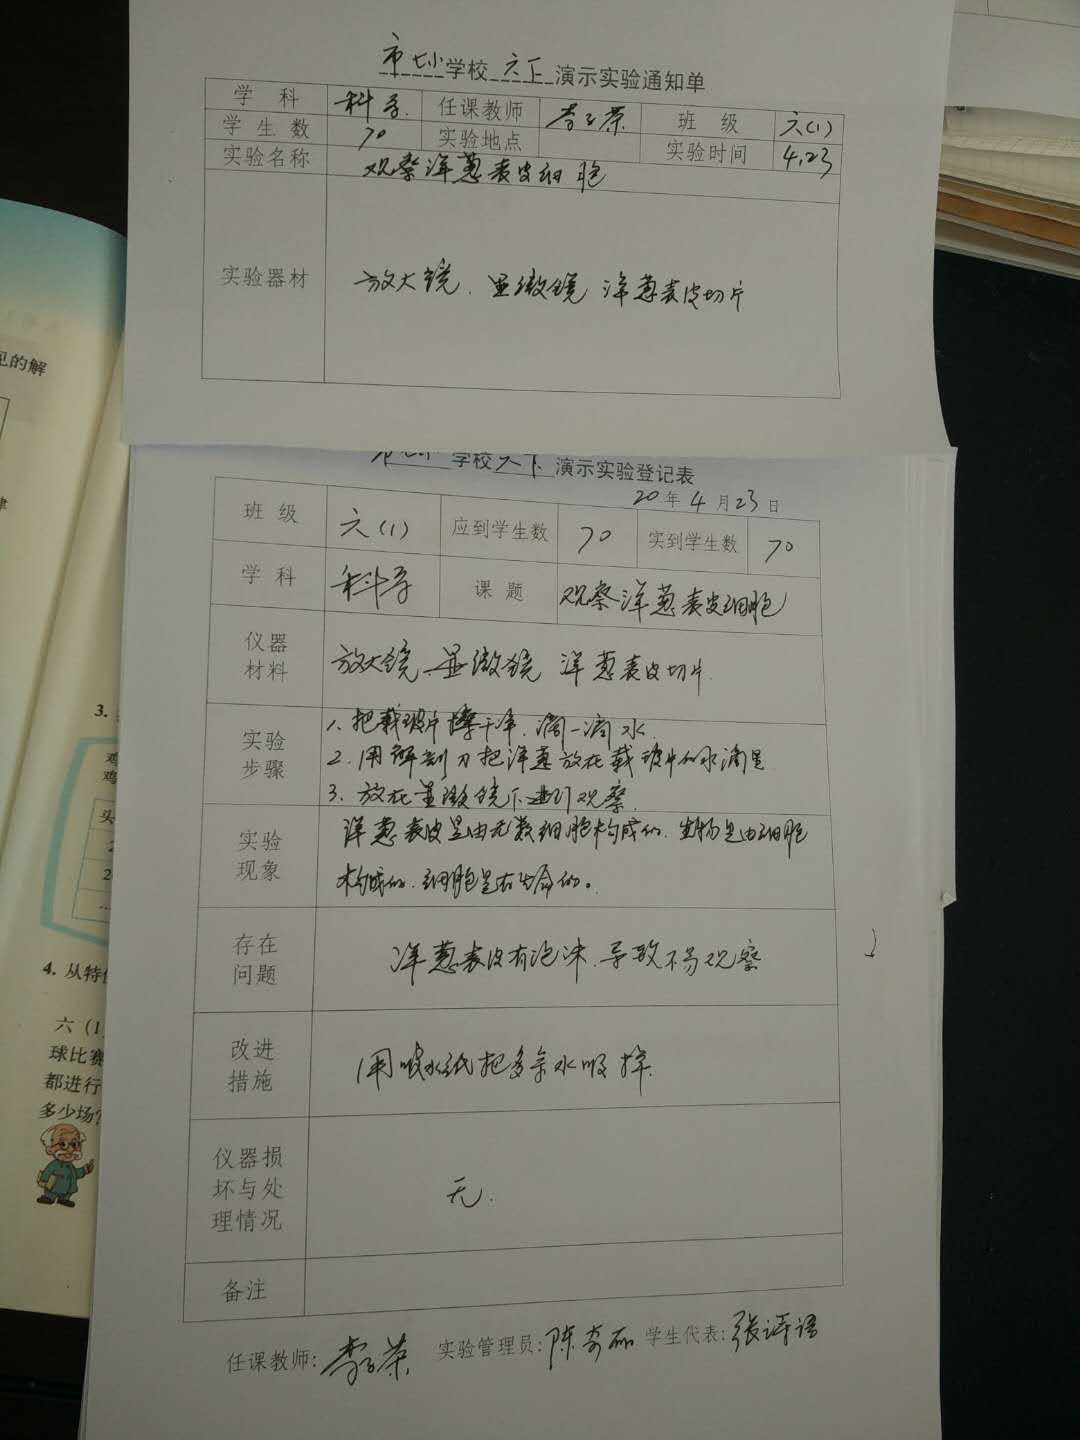 市七小学校六下演示实验通知单
学科 科学 任课教师 李子荣 班级 六(1)
学生数 70 实验地点 实验时间 4.23
实验名称 观察洋葱表皮细胞
实验器材 放大镜.显微镜 洋葱表皮切片
市七小学校六下演示实验登记表
20年4月23日
班级 六(1) 应到学生数 70 实到学生数 70
学科 科学 课题 观察洋葱表皮细胞
仪器材料 放大镜.显微镜 洋葱表皮切片.
实验步骤
1、把载玻片擦干净.滴一滴水.
2.用解剖刀把洋葱放在载玻片的水滴里
3、放在显微镜下进行观察.
实验现象
洋葱表皮是由无数细胞构成的.生物是由细胞
构成的.细胞是有生命的。
存在问题 洋葱表皮有泡沫.导致不易观察
改进措施 用吸水纸把多余水吸掉.
仪器损坏与处理情况 无.
备注
任课教师:李子荣 实验管理员:陈奇 学生代表:张诗语
见的解
律
3.
鸡
鸡
头
2
2
...
4. 从特
六（1
球比赛
都进行
多少场?